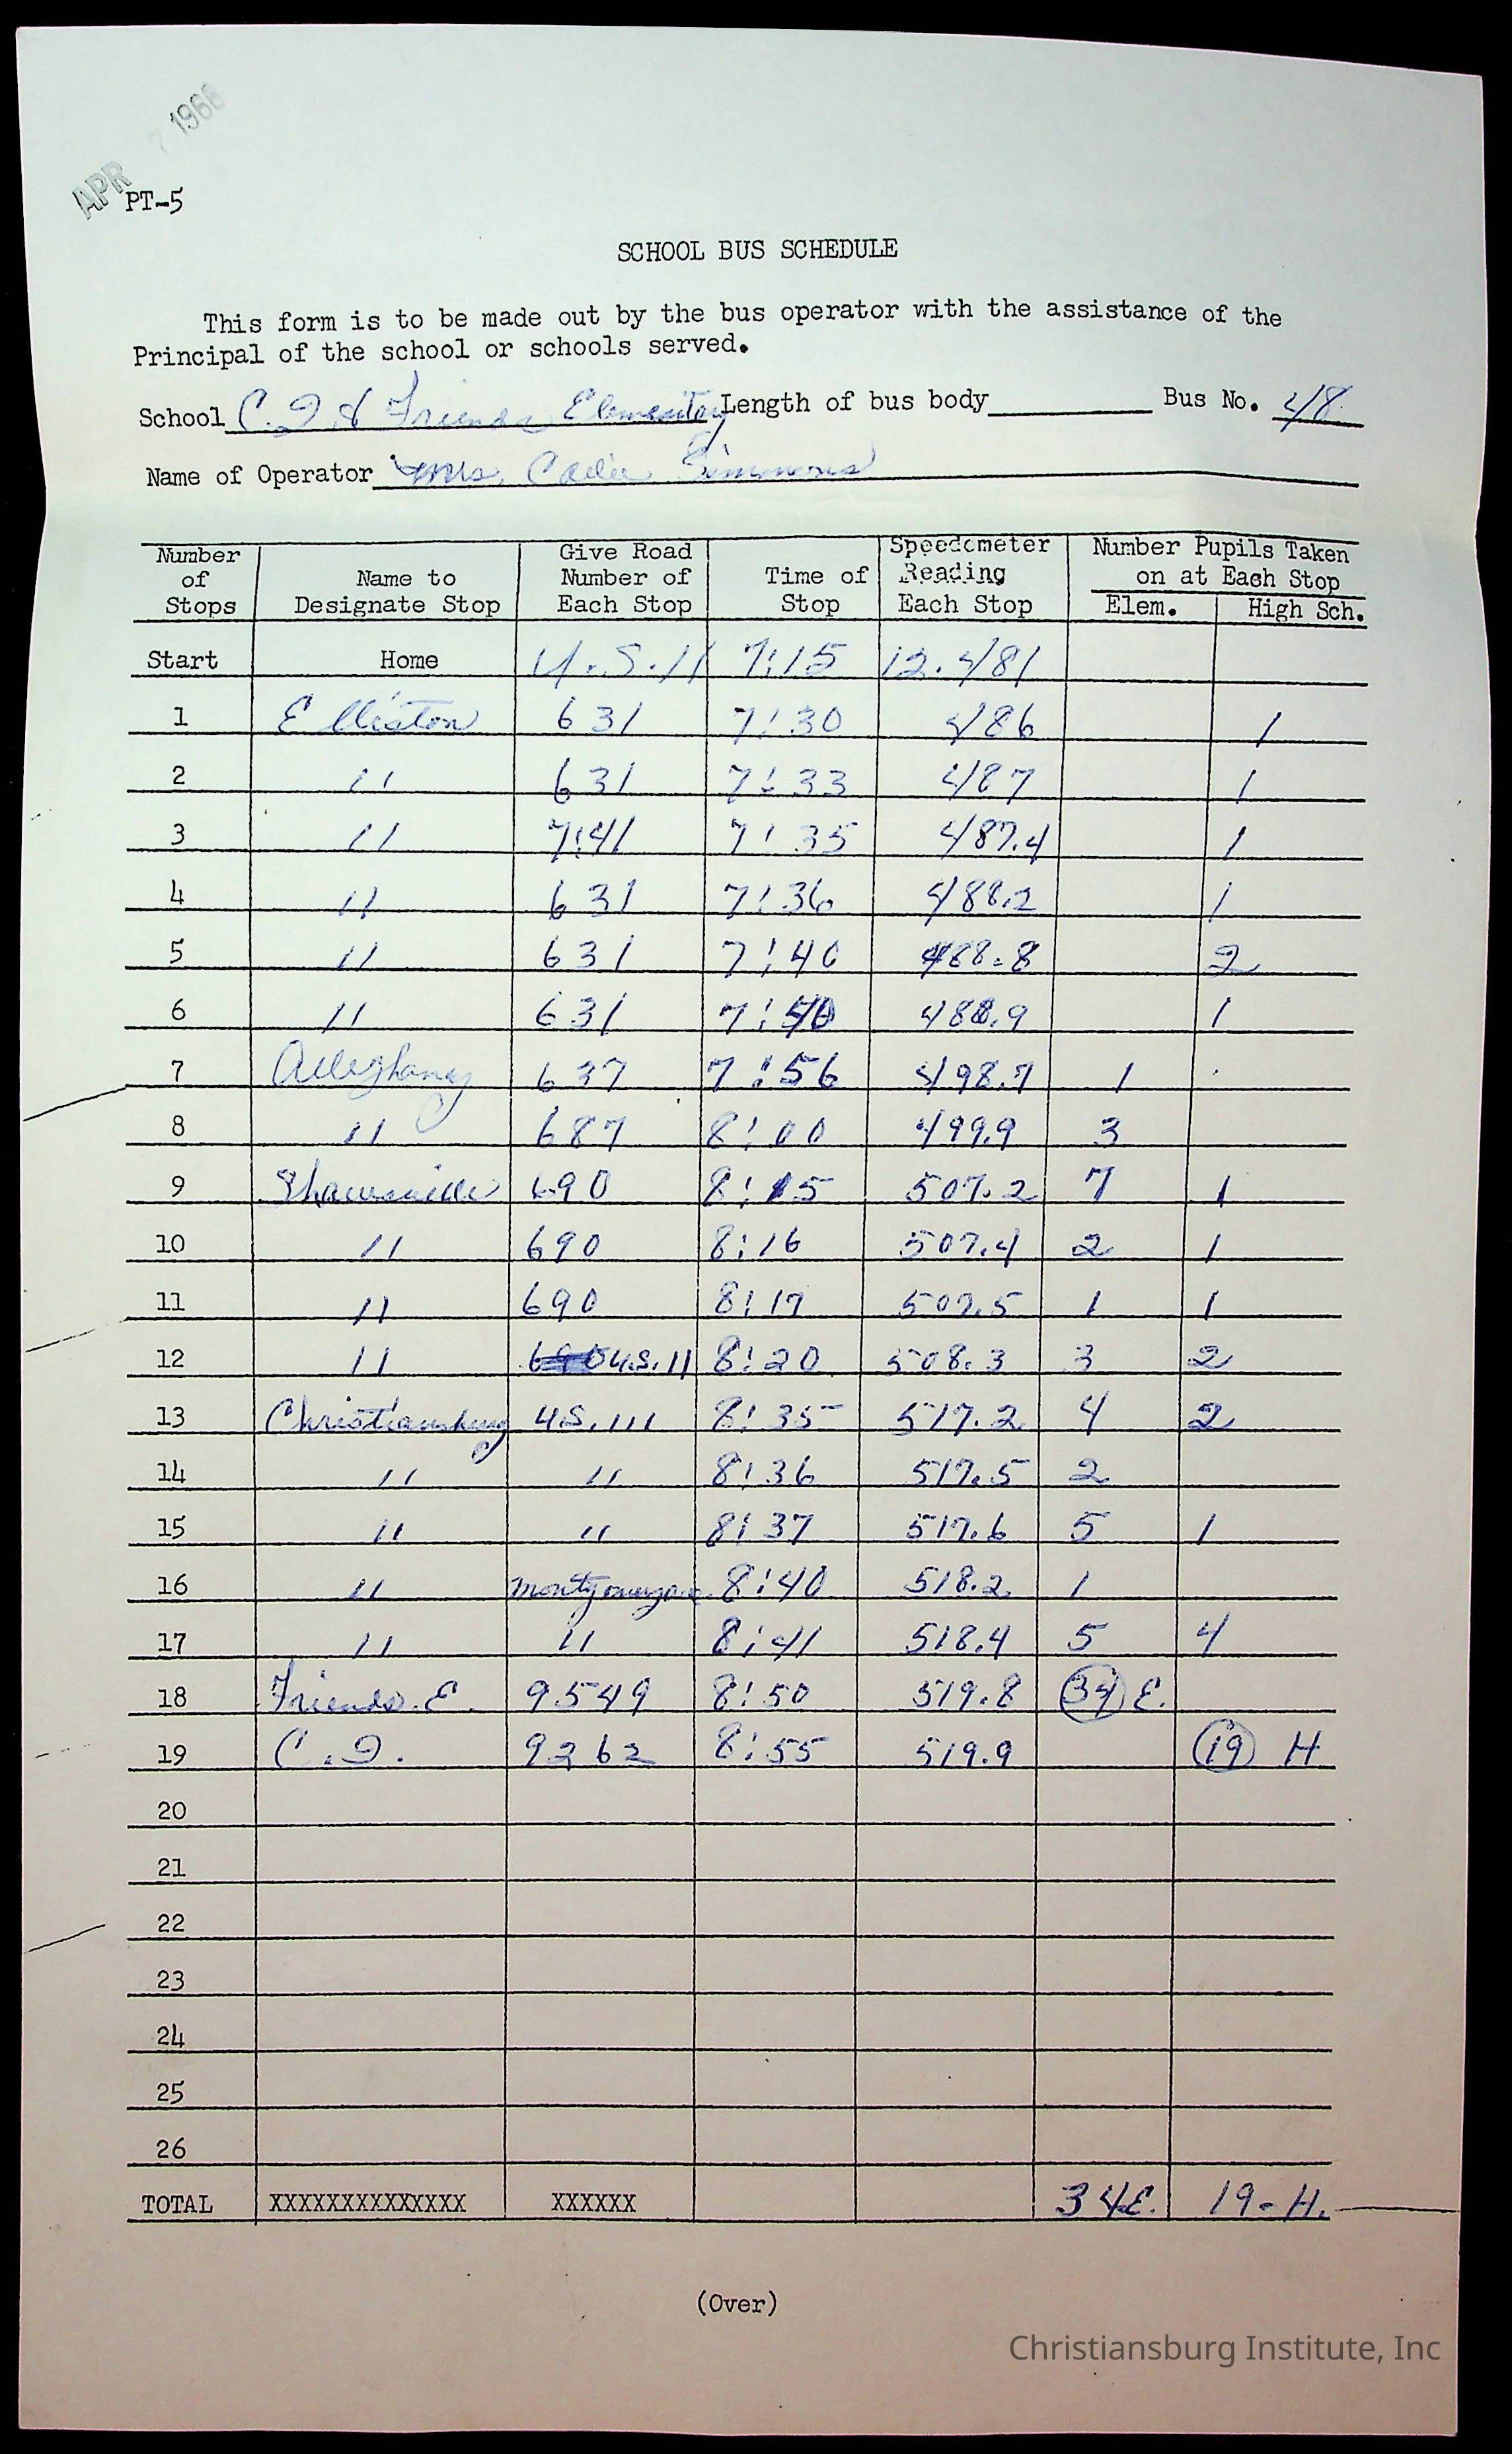 APR 7 1966
PT-5
SCHOOL BUS SCHEDULE
This form is to be made out by the bus operator with the assistance of the
Principal of the school or schools served.
School C.I & Friends Elementary Length of bus body Bus No. 48
Name of Operator Mrs. Simmons
Number of Stops Name to Designate Stop Give Road Number of Each Stop Time of Stop Speedometer Reading Each Stop Number Pupils Taken on at Each Stop
Elem. High Sch.
Start Home U.S.11 7:15 12.481
1 Elliston 631 7:30 486 1
2 " 631 7:33 487 1
3 " 7:41 7:35 487.4 1
4 " 631 7:36 488.2 1
5 " 631 7:40 488.8 2
6 " 631 7:40 488.9 1
7 Alleghany 637 7:56 498.7 1
8 " 687 8:00 499.9 3
9 Shawsville 690 8:15 507.2 7 1
10 " 690 8:16 507.4 2 1
11 " 690 8:17 507.5 1 1
12 " U.S.11 8:20 508.3 3 2
13 Christiansburg U.S.111 8:35 517.2 4 2
14 " " 8:36 517.5 2
15 " " 8:37 517.6 5 1
16 " 8:40 518.2 1
17 " " 8:41 518.4 5 4
18 Friends.E. 9549 8:50 519.8 34 E.
19 C.I. 9262 8:55 519.9 19 H
20
21
22
23
24
25
26
TOTAL XXXXXXXXXXXXXX XXXXXX 34E. 19-H.
(Over)
Christiansburg Institute, Inc